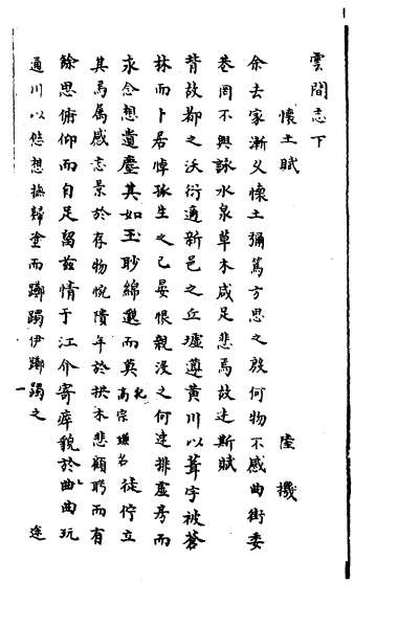 雲間志下
懷土賦　陸機
余去家漸久懷土彌篤方思之殷何物不感曲街委
巷罔不興詠水泉草木咸足悲焉故述斯賦
背故都之沃衍適新邑之丘墟遵黃川以葺宇被蒼
林而卜居悼孤生之已晏恨親没之何速排虚房而
永念想遺塵其如玉眇綿邈而莫犯高宗嫌名徒佇立
其焉屬感亡景於存物惋隤年於拱木悲顧眄而有
餘思俯仰而自足留兹情于江介寄瘁貌於曲曲玩
通川以悠想撫歸塗而躑躅伊躑躅之
途
一